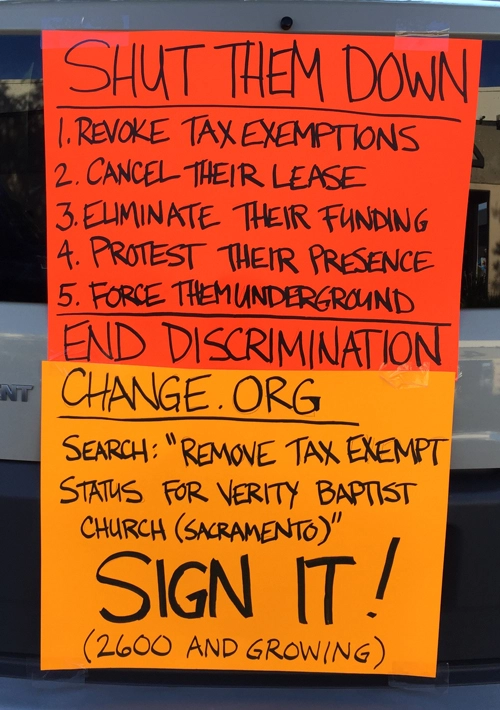 SHUT THEM DOWN
1. REVOKE TAX EXEMPTIONS
2. CANCEL THEIR LEASE
3. ELIMINATE THEIR FUNDING
4. PROTEST THEIR PRESENCE
5. FORCE THEM UNDERGROUND
END DISCRIMINATION
CHANGE.ORG
NT
SEARCH: "REMOVE TAX EXEMPT
STATUS FOR VERITY BAPTIST
CHURCH (SACRAMENTO)"
SIGN IT!
(2600 AND GROWING)